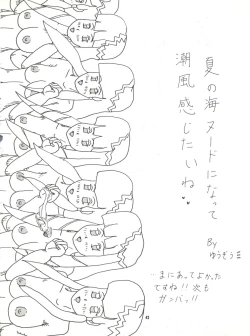 夏の海ヌードになって
潮風感じたいね
By
ゆうぞうE
まにあってよかった
ですね!!次も
ガンバッ!!